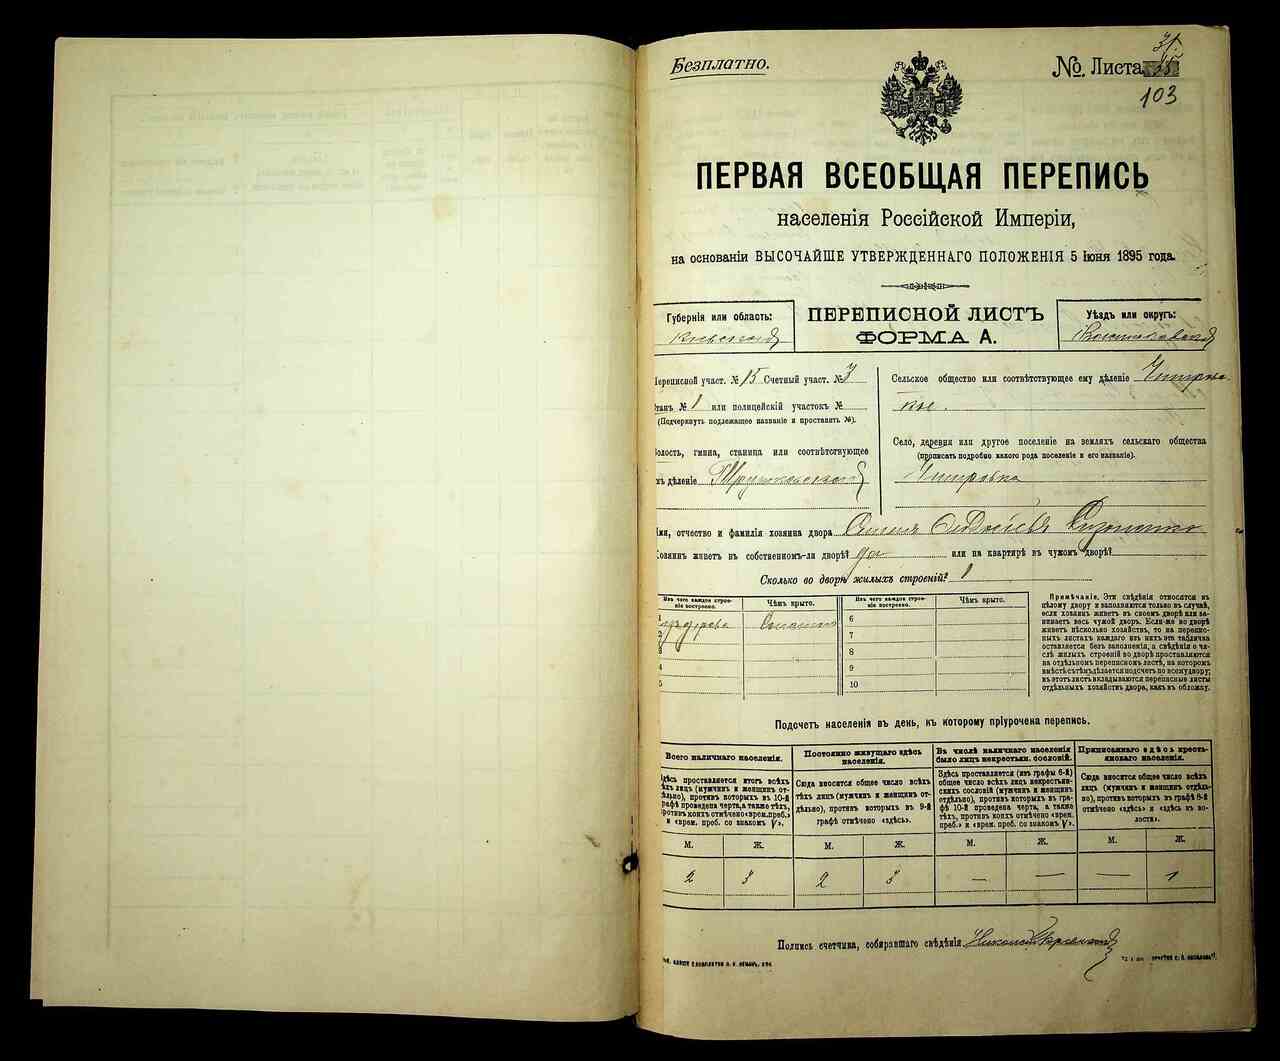 Безплатно.
№ Листа
103
ПЕРВАЯ ВСЕОБЩАЯ ПЕРЕПИСЬ
населенія Россійской Имперіи,
на основаніи ВЫСОЧАЙШЕ УТВЕРЖДЕННАГО ПОЛОЖЕНІЯ 5 Іюня 1895 года.
Губернія или область:
Кіевская
ПЕРЕПИСНОЙ ЛИСТЪ
ФОРМА А.
Уѣздъ или округъ:
Переписной участ. № 15 Счетный участ. № 3
Станъ № 1 или полицейскій участокъ №
(Подчеркнуть подлежащее названіе и проставить №).
Волость, гмина, станица или соотвѣтствующее
имъ дѣленіе
Сельское общество или соотвѣтствующее ему дѣленіе
Село, деревня или другое поселеніе на земляхъ сельскаго общества
(прописать подробно какого рода поселеніе и его названіе).
Имя, отчество и фамилія хозяина двора
Хозяинъ живетъ въ собственномъ-ли дворѣ? да или на квартирѣ въ чужомъ дворѣ?
Сколько во дворѣ жилыхъ строеній? 1
Изъ чего каждое строеніе построено.
Чѣмъ крыто.
Изъ чего каждое строеніе построено.
Чѣмъ крыто.
1 дерева
2
3
4
5
6
7
8
9
10
Примѣчаніе. Эти свѣдѣнія относятся къ
цѣлому двору и заполняются только въ случаѣ,
если хозяинъ живетъ въ своемъ дворѣ или занимаетъ
весь чужой дворъ. Если-же во дворѣ
живетъ нѣсколько хозяйствъ, то на переписныхъ
листахъ каждаго изъ нихъ эта табличка
оставляется безъ заполненія, а свѣдѣнія о числѣ
жилыхъ строеній во дворѣ проставляются
на отдѣльномъ переписномъ листѣ, на которомъ
вмѣстѣ съ тѣмъ дѣлается подсчетъ по всему двору;
въ этотъ листъ вкладываются переписные листы
отдѣльныхъ хозяйствъ двора, какъ въ обложку.
Подсчетъ населенія въ день, къ которому пріурочена перепись.
Всего наличнаго населенія.
Здѣсь проставляется итогъ всѣхъ
тѣхъ лицъ (мужчинъ и женщинъ отдѣльно),
противъ которыхъ въ 10-й
графѣ проведена черта, а также тѣхъ,
противъ коихъ отмѣчено «врем. преб.»
и «врем. преб. со знакомъ V».
Постоянно живущаго здѣсь населенія.
Сюда вносится общее число всѣхъ
тѣхъ лицъ (мужчинъ и женщинъ отдѣльно),
противъ которыхъ въ 9-й
графѣ отмѣчено «здѣсь».
Въ числѣ наличнаго населенія
было лицъ некрестьян. сословій.
Здѣсь проставляется (изъ графы 6-й)
общее число всѣхъ лицъ некрестьянскихъ
сословій (мужчинъ и женщинъ
отдѣльно), противъ которыхъ въ графѣ
10-й проведена черта, а также
тѣхъ, противъ коихъ отмѣчено «врем.
преб.» и «врем. преб. со знакомъ V».
Приписаннаго здѣсь крестьянскаго населенія.
Сюда вносится общее число всѣхъ
лицъ (мужчинъ и женщинъ отдѣльно),
противъ которыхъ въ графѣ 8-й
отмѣчено «здѣсь» и «здѣсь въ волости».
М. Ж. М. Ж. М. Ж. М. Ж.
2 3 2 3 — — — 1
Подпись счетчика, собиравшаго свѣдѣнія Николай